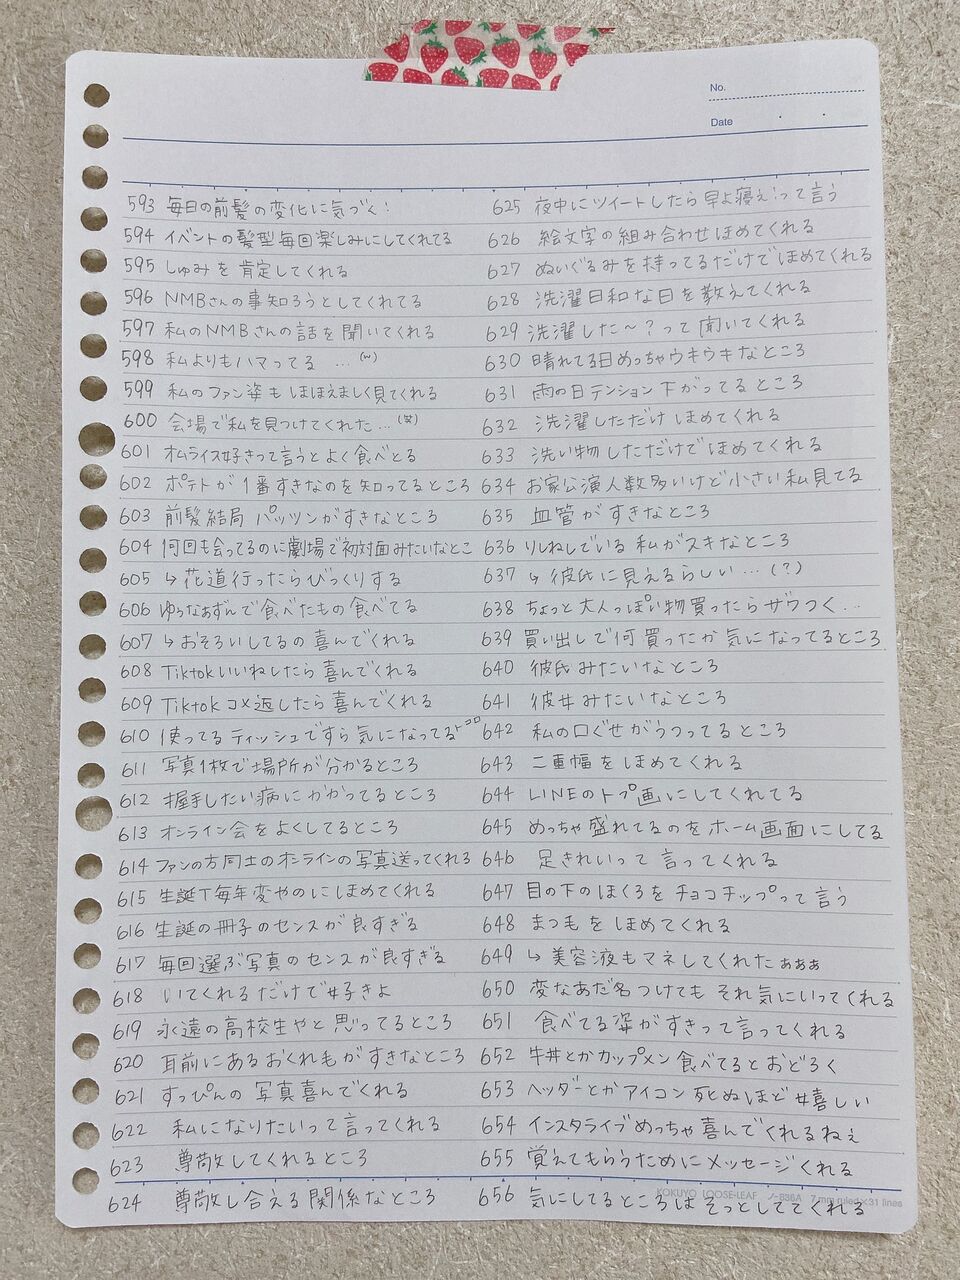 No.
Date
593 毎日の前髪の変化に気づく!
594 イベントの髪型毎回楽しみにしてくれてる
595 しゅみを肯定してくれる
596 NMBさんの事知ろうとしてくれてる
597 私のNMBさんの話を聞いてくれる
598 私よりもハマってる …(w)
599 私のファン姿もほほえましく見てくれる
600 会場で私を見つけてくれた…(笑)
601 オムライス好きって言うとよく食べとる
602 ポテトが1番すきなのを知ってるところ
603 前髪結局パッツンがすきなところ
604 何回も会ってるのに劇場で初対面みたいなとこ
605 ↳花道行ったらびっくりする
606 ゆうなぁずんで食べたもの食べてる
607 ↳おそろいしてるの喜んでくれる
608 Tiktokいいねしたら喜んでくれる
609 Tiktokコメ返したら喜んでくれる
610 使ってるティッシュですら気になってるトコロ
611 写真1枚で場所が分かるところ
612 握手したい病にかかってるところ
613 オンライン会をよくしてるところ
614 ファンの方同士のオンラインの写真送ってくれる
615 生誕T毎年変やのにほめてくれる
616 生誕の冊子のセンスが良すぎる
617 毎回選ぶ写真のセンスが良すぎる
618 いてくれるだけで好きよ
619 永遠の高校生やと思ってるところ
620 耳前にあるおくれ毛がすきなところ
621 すっぴんの写真喜んでくれる
622 私になりたいって言ってくれる
623 尊敬してくれるところ
624 尊敬し合える関係なところ
625 夜中にツイートしたら早よ寝ぇ!って言う
626 絵文字の組み合わせほめてくれる
627 ぬいぐるみを持ってるだけでほめてくれる
628 洗濯日和な日を教えてくれる
629 洗濯した〜?って聞いてくれる
630 晴れてる日めっちゃウキウキなところ
631 雨の日テンション下がってるところ
632 洗濯しただけほめてくれる
633 洗い物しただけでほめてくれる
634 お家公演人数多いけど小さい私見てる
635 血管がすきなところ
636 りしねしでいる私がスキなところ
637 ↳彼氏に見えるらしい…(?)
638 ちょっと大人っぽい物買ったらザワつく…
639 買い出しで何買ったか気になってるところ
640 彼氏みたいなところ
641 彼女みたいなところ
642 私の口ぐせがうつってるところ
643 二重幅をほめてくれる
644 LINEのトプ画にしてくれてる
645 めっちゃ盛れてるのをホーム画面にしてる
646 足きれいって言ってくれる
647 目の下のほくろをチョコチップって言う
648 まつ毛をほめてくれる
649 ↳美容液もマネしてくれたぁぁぁ
650 変なあだ名つけてもそれ気にいってくれる
651 食べてる姿がすきって言ってくれる
652 牛丼とかカップメン食べてるとおどろく
653 ヘッダーとかアイコン死ぬほど嬉しい
654 インスタライブめっちゃ喜んでくれるねぇ
655 覚えてもらうためにメッセージくれる
656 気にしてるところはそっとしててくれる
KOKUYO LOOSE-LEAF ノ-836A 7 mm ruled×31 lines